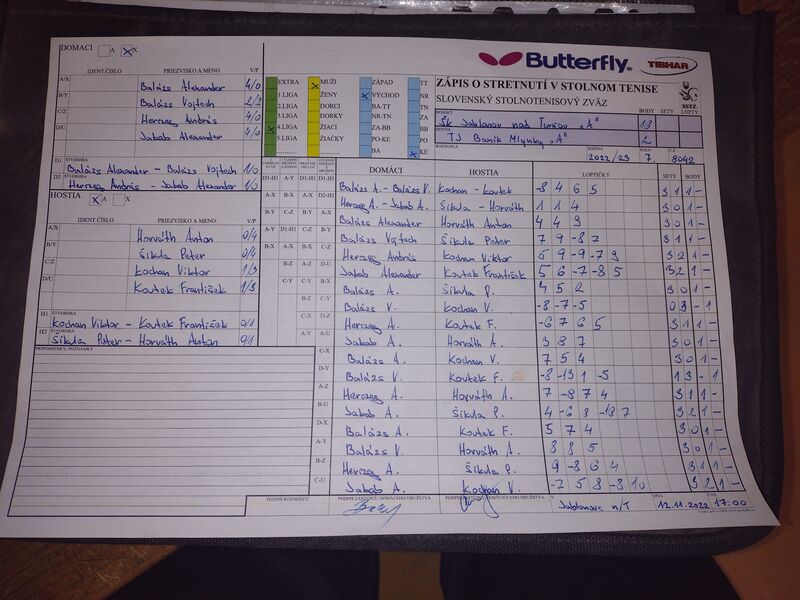 DOMACI A X
Butterfly
TIBHAR
IDENT ČÍSLO PRIEZVISKO A MENO V/P
A/X Balázs Alexander 4/0
B/Y Balázs Vojtech 2/3
C/Z Herczeg András 4/0
D/U Jakab Alexander 4/0
D1 ŠTVORHRA Balázs Alexander - Balázs Vojtech 1/0
D2 Herczeg András - Jakab Alexander 1/0
HOSTIA A X
IDENT ČÍSLO PRIEZVISKO A MENO V/P
A/X Horváth Anton 0/4
B/Y Šikula Peter 0/4
C/Z Kochan Viktor 1/3
D/U Koutek František 1/3
H1 ŠTVORHRA Kochan Viktor - Koutek František 0/1
H2 ŠTVORHRA Šikula Peter - Horváth Anton 0/1
PRIPOMIENKY, POZNÁMKY
EXTRA MUŽI ZÁPAD TT
1.LIGA ŽENY VÝCHOD NR
2.LIGA DORCI BA-TT TN
3.LIGA DORKY NR-TN ZA
4.LIGA ŽIACI ZA-BB BB
5.LIGA ŽIAČKY PO-KE PO
BA KE
ZÁPIS O STRETNUTÍ V STOLNOM TENISE
SLOVENSKÝ STOLNOTENISOVÝ ZVÄZ
SSTZ
BODY SETY LOPTY
DOMÁCI ŠK Jablonov nad Turňou "A" 13
HOSTIA TJ Baník Mlynky "A" 2
ROZHODCA SEZÓNA 2022/23 KOLO 7. 8042
DOMÁCI HOSTIA LOPTIČKY SETY BODY
Balázs A. - Balázs V. Kochan - Koutek -8 4 6 5 3 1 1 -
Herczeg A. - Jakab A. Šikula - Horváth 1 1 4 3 0 1 -
Balázs Alexander Horváth Anton 4 4 9 3 0 1 -
Balázs Vojtech Šikula Peter 7 9 -8 2 3 1 1 -
Herczeg András Kochan Viktor 5 9 -9 -7 9 3 2 1 -
Jakab Alexander Koutek František 5 6 -7 -8 5 3 2 1 -
Balázs A. Šikula P. 4 5 2 3 0 1 -
Balázs V. Kochan V. -8 -7 -5 0 3 - 1
Herczeg A. Koutek F. -6 7 6 5 3 1 1 -
Jakab A. Horváth A. 3 8 7 3 0 1 -
Balázs A. Kochan V. 7 5 4 3 0 1 -
Balázs V. Koutek F. -8 -13 1 -5 1 3 - 1
Herczeg A. Horváth A. 7 -8 7 4 3 1 1 -
Jakab A. Šikula P. 4 -6 8 -13 7 3 2 1 -
Balázs A. Koutek F. 5 7 4 3 0 1 -
Balázs V. Horváth A. 8 8 5 3 0 1 -
Herczeg A. Šikula P. 9 -8 6 4 3 1 1 -
Jakab A. Kochan V. -7 5 8 -8 10 3 2 1 -
PODPIS ROZHODCU PODPIS ZÁSTUPCU DOMÁCEHO DRUŽSTVA V Jablonove n/T DŇA 12.11.2022 17:00